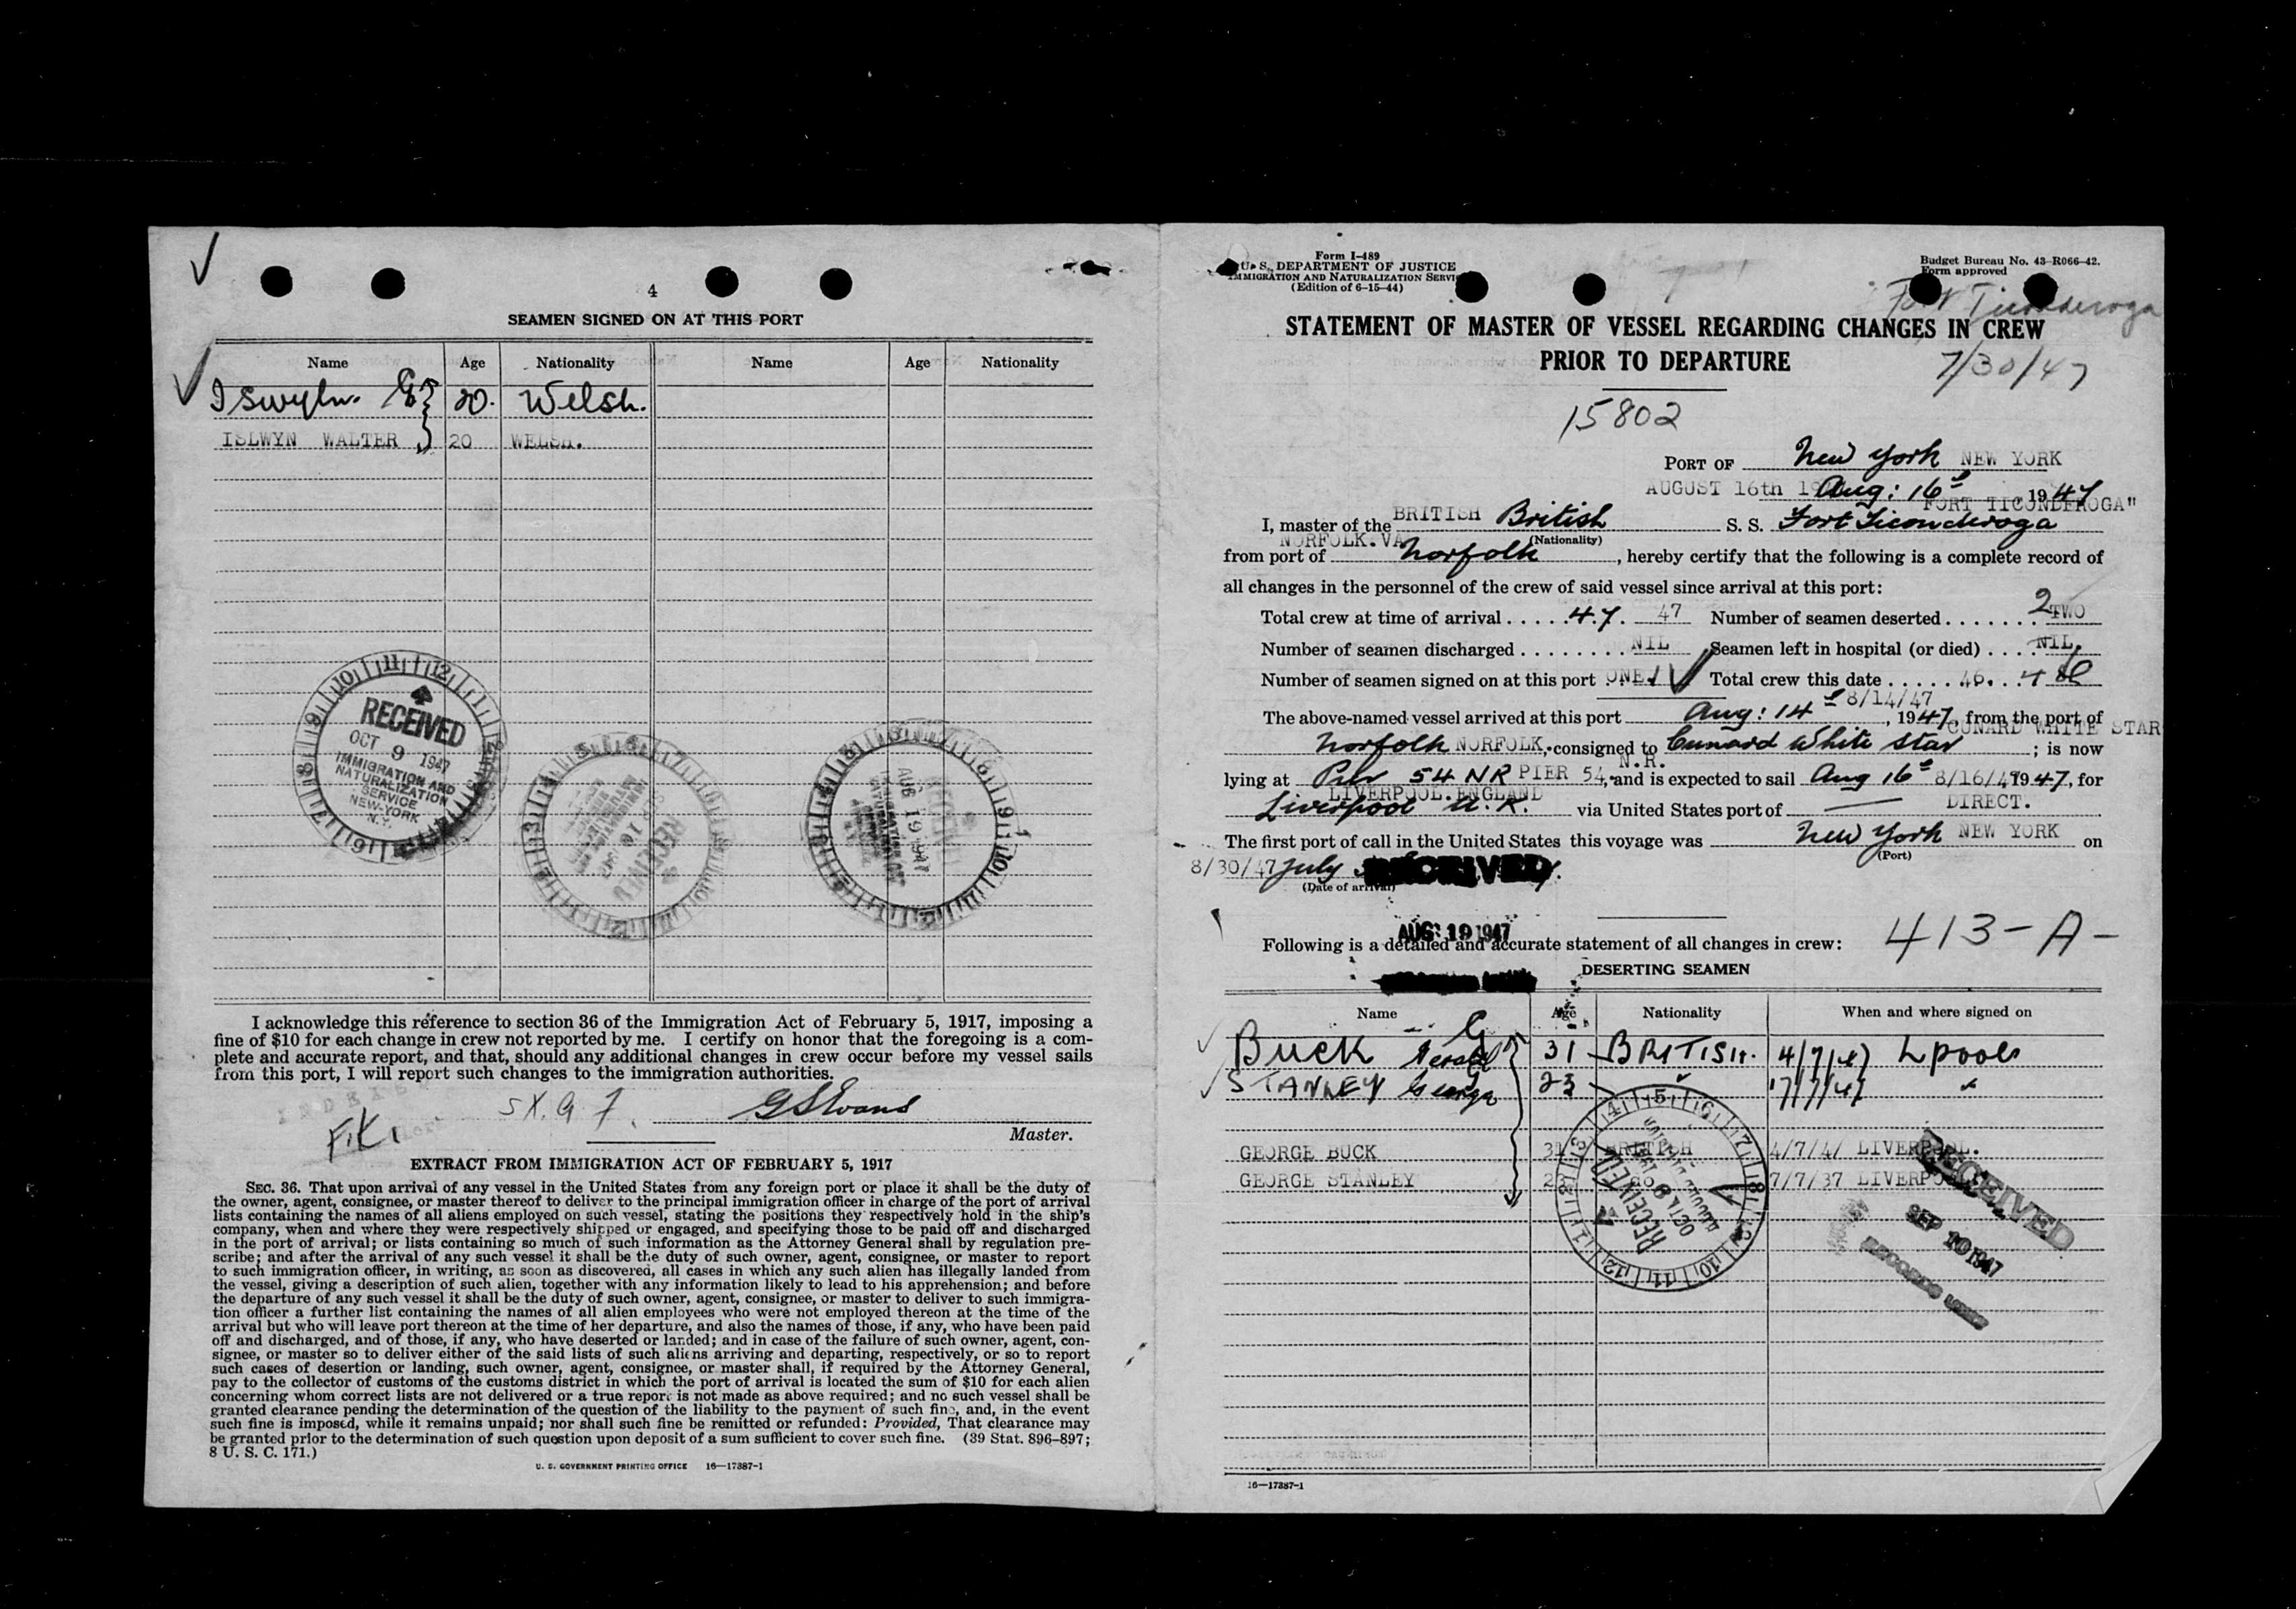 4
SEAMEN SIGNED ON AT THIS PORT
Name Age Nationality Name Age Nationality
20. Welsh.
ISLWYN WALTER 20 WELSH.
RECEIVED
OCT 9 1947
IMMIGRATION AND
NATURALIZATION
SERVICE
NEW-YORK
N.Y.
AUG 19 1947
I acknowledge this reference to section 36 of the Immigration Act of February 5, 1917, imposing a
fine of $10 for each change in crew not reported by me. I certify on honor that the foregoing is a com-
plete and accurate report, and that, should any additional changes in crew occur before my vessel sails
from this port, I will report such changes to the immigration authorities.
G S Evans
Master.
EXTRACT FROM IMMIGRATION ACT OF FEBRUARY 5, 1917
SEC. 36. That upon arrival of any vessel in the United States from any foreign port or place it shall be the duty of
the owner, agent, consignee, or master thereof to deliver to the principal immigration officer in charge of the port of arrival
lists containing the names of all aliens employed on such vessel, stating the positions they respectively hold in the ship's
company, when and where they were respectively shipped or engaged, and specifying those to be paid off and discharged
in the port of arrival; or lists containing so much of such information as the Attorney General shall by regulation pre-
scribe; and after the arrival of any such vessel it shall be the duty of such owner, agent, consignee, or master to report
to such immigration officer, in writing, as soon as discovered, all cases in which any such alien has illegally landed from
the vessel, giving a description of such alien, together with any information likely to lead to his apprehension; and before
the departure of any such vessel it shall be the duty of such owner, agent, consignee, or master to deliver to such immigra-
tion officer a further list containing the names of all alien employees who were not employed thereon at the time of the
arrival but who will leave port thereon at the time of her departure, and also the names of those, if any, who have been paid
off and discharged, and of those, if any, who have deserted or landed; and in case of the failure of such owner, agent, con-
signee, or master so to deliver either of the said lists of such aliens arriving and departing, respectively, or so to report
such cases of desertion or landing, such owner, agent, consignee, or master shall, if required by the Attorney General,
pay to the collector of customs of the customs district in which the port of arrival is located the sum of $10 for each alien
concerning whom correct lists are not delivered or a true report is not made as above required; and no such vessel shall be
granted clearance pending the determination of the question of the liability to the payment of such fine, and, in the event
such fine is imposed, while it remains unpaid; nor shall such fine be remitted or refunded: Provided, That clearance may
be granted prior to the determination of such question upon deposit of a sum sufficient to cover such fine. (39 Stat. 896–897;
8 U. S. C. 171.)
U. S. GOVERNMENT PRINTING OFFICE 16—17387-1
Form I-489
U. S. DEPARTMENT OF JUSTICE
IMMIGRATION AND NATURALIZATION SERVICE
(Edition of 6-15-44)
Budget Bureau No. 43-R066-42.
Form approved
Fort Ticonderoga
STATEMENT OF MASTER OF VESSEL REGARDING CHANGES IN CREW
PRIOR TO DEPARTURE
7/30/47
15802
PORT OF New York NEW YORK
AUGUST 16th Aug: 16th, 1947
BRITISH FORT TICONDEROGA"
I, master of the British S. S. Fort Ticonderoga
NORFOLK.VA (Nationality)
from port of Norfolk, hereby certify that the following is a complete record of
all changes in the personnel of the crew of said vessel since arrival at this port:
Total crew at time of arrival . . . . . 47. 47 Number of seamen deserted . . . . . . . 2 TWO
Number of seamen discharged . . . . . . . . NIL Seamen left in hospital (or died) . . . . NIL.
Number of seamen signed on at this port . ONE. 1 Total crew this date . . . . . 46. 46
8/14/47
The above-named vessel arrived at this port Aug: 14th, 1947, from the port of
CUNARD WHITE STAR
Norfolk NORFOLK. consigned to Cunard White Star; is now
N.R.
lying at Pier 54 NR PIER 54, and is expected to sail Aug 16th 8/16/47 1947, for
LIVERPOOL.ENGLAND DIRECT.
Liverpool U.K. via United States port of —
The first port of call in the United States this voyage was New York NEW YORK on
(Port)
8/30/47 July
(Date of arrival)
RECEIVED
AUG 19 1947
Following is a detailed and accurate statement of all changes in crew:
413-A-
DESERTING SEAMEN
Name Age Nationality When and where signed on
BUCK G 31 BRITISH. 4/7/47 Lpool
STANLEY George 23 " 7/7/47 "
GEORGE BUCK 31 BRITISH 4/7/47 LIVERPOOL.
GEORGE STANLEY do 7/7/37 LIVERPOOL
RECEIVED
OCT 9 1947
RECEIVED
SEP 10 1947
16—17387-1